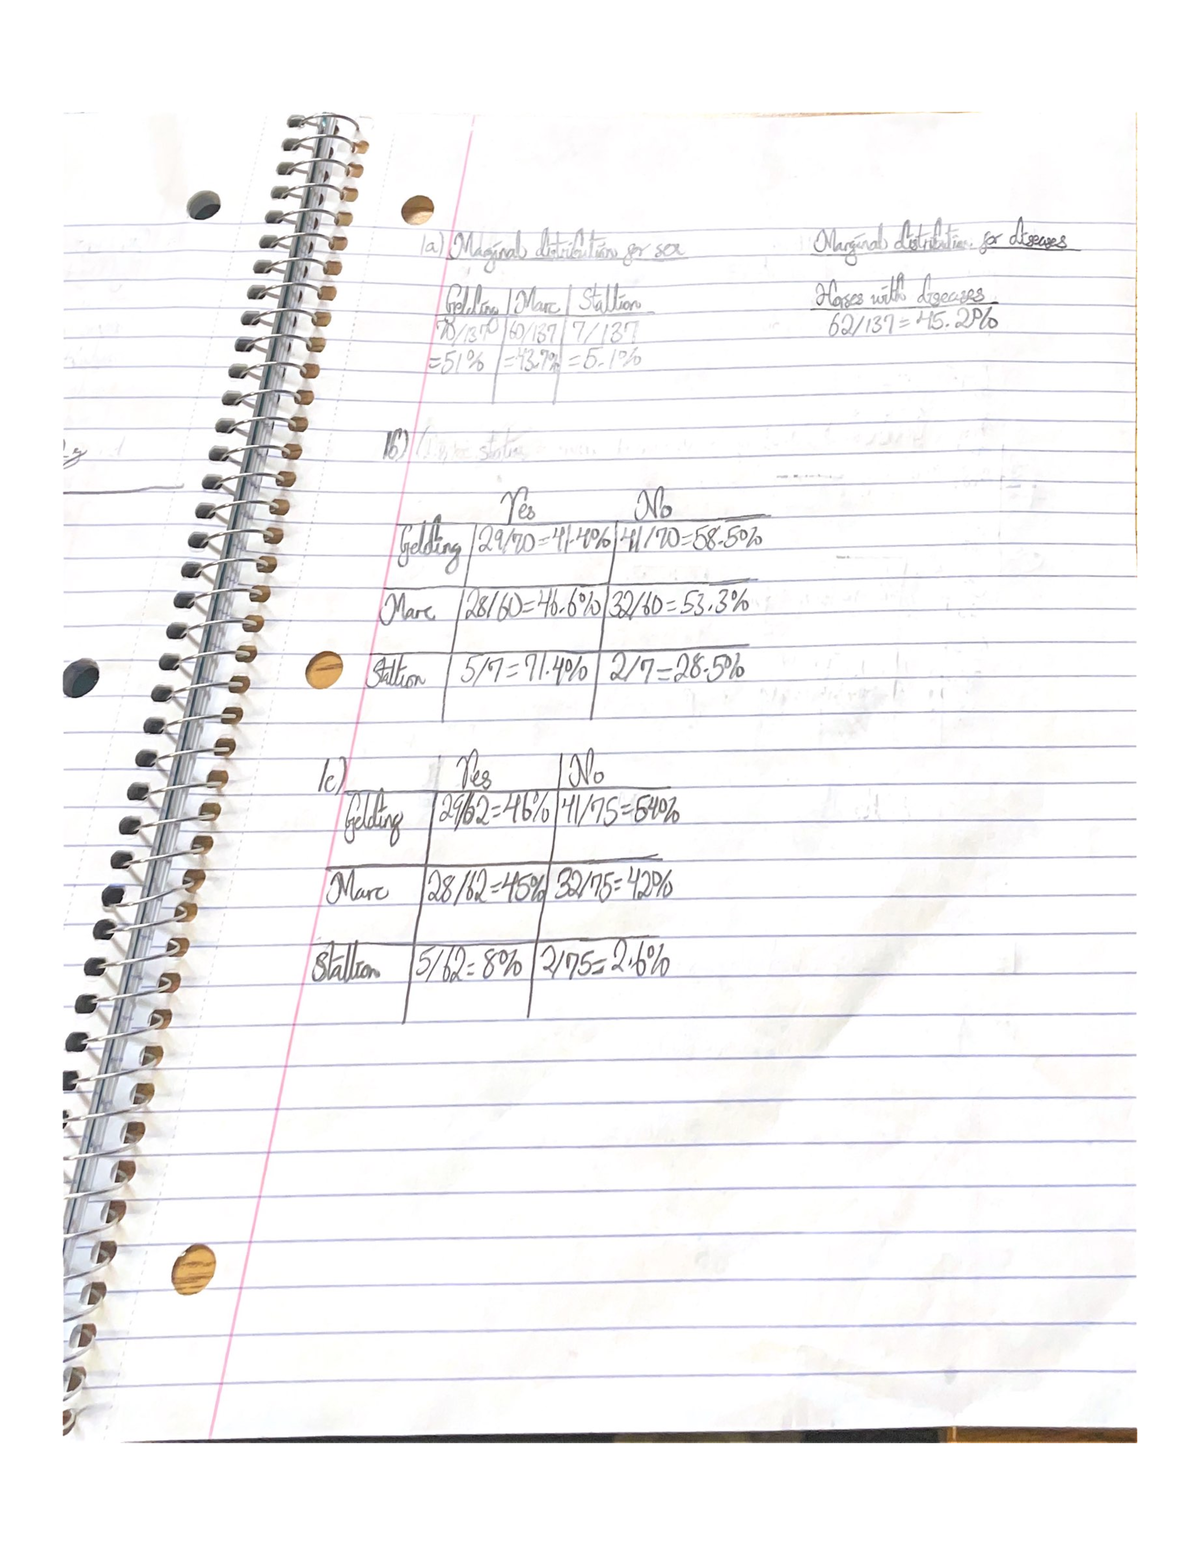 1a) Marginal distribution for sex
Marginal distribution for diseases
Gelding | Mare | Stallion
Horses with diseases
70/137 | 60/137 | 7/137
62/137 = 45.2%
=51% | =43.7% | =5.1%
1b)
Yes No
Gelding | 29/70=41.4% | 41/70=58.5%
Mare | 28/60=46.6% | 32/60=53.3%
Stallion | 5/7=71.4% | 2/7=28.5%
1c) Yes | No
Gelding | 29/62=46% | 41/75=54%
Mare | 28/62=45% | 32/75=42%
Stallion | 5/62=8% | 2/75=2.6%